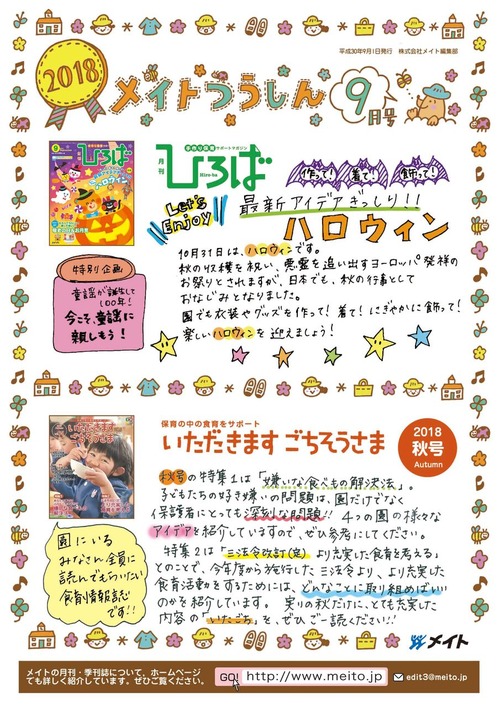 平成30年9月1日発行　株式会社メイト編集部
2018
メイトつうしん 9月号
手作り保育サポートマガジン
月刊 ひろば
Hiro-ba
作って！ 着て！ 飾って！
Let's Enjoy
最新アイデアぎっしり！！
ハロウィン
10月31日は、ハロウィンです。
秋の収穫を祝い、悪霊を追い出すヨーロッパ発祥の
お祭りとされますが、日本でも、秋の行事として
おなじみとなりました。
園でも衣装やグッズを作って！着て！にぎやかに飾って！
楽しいハロウィンを迎えましょう！
特別企画
童謡が誕生して
100年！
今こそ、童謡に
親しもう！
ひろば
ハロウィン
保育の中の食育をサポート
いただきます ごちそうさま
2018
秋号
Autumn
いただきます
ごちそうさま
秋号の特集1は「嫌いな食べもの解決法」。
子どもたちの好き嫌いの問題は、園だけでなく
保護者にとっても深刻な問題!! 4つの園の様々な
アイデアを紹介していますので、ぜひ参考にしてください。
特集2は「三法令改訂(定)より充実した食育を考える」
とのことで、今年度から施行した三法令より、より充実した
食育活動をするためには、どんなことに取り組めばいい
のかを紹介しています。 実りの秋だけに、とても充実した
内容の「いたごち」を、ぜひご一読ください!!
園にいる
みなさん全員に
読んでもらいたい
食育情報誌
です!!
メイト
メイトの月刊・季刊誌について、ホームページ
でも詳しく紹介しています。ぜひご覧ください。
GO!
http://www.meito.jp
edit3@meito.jp